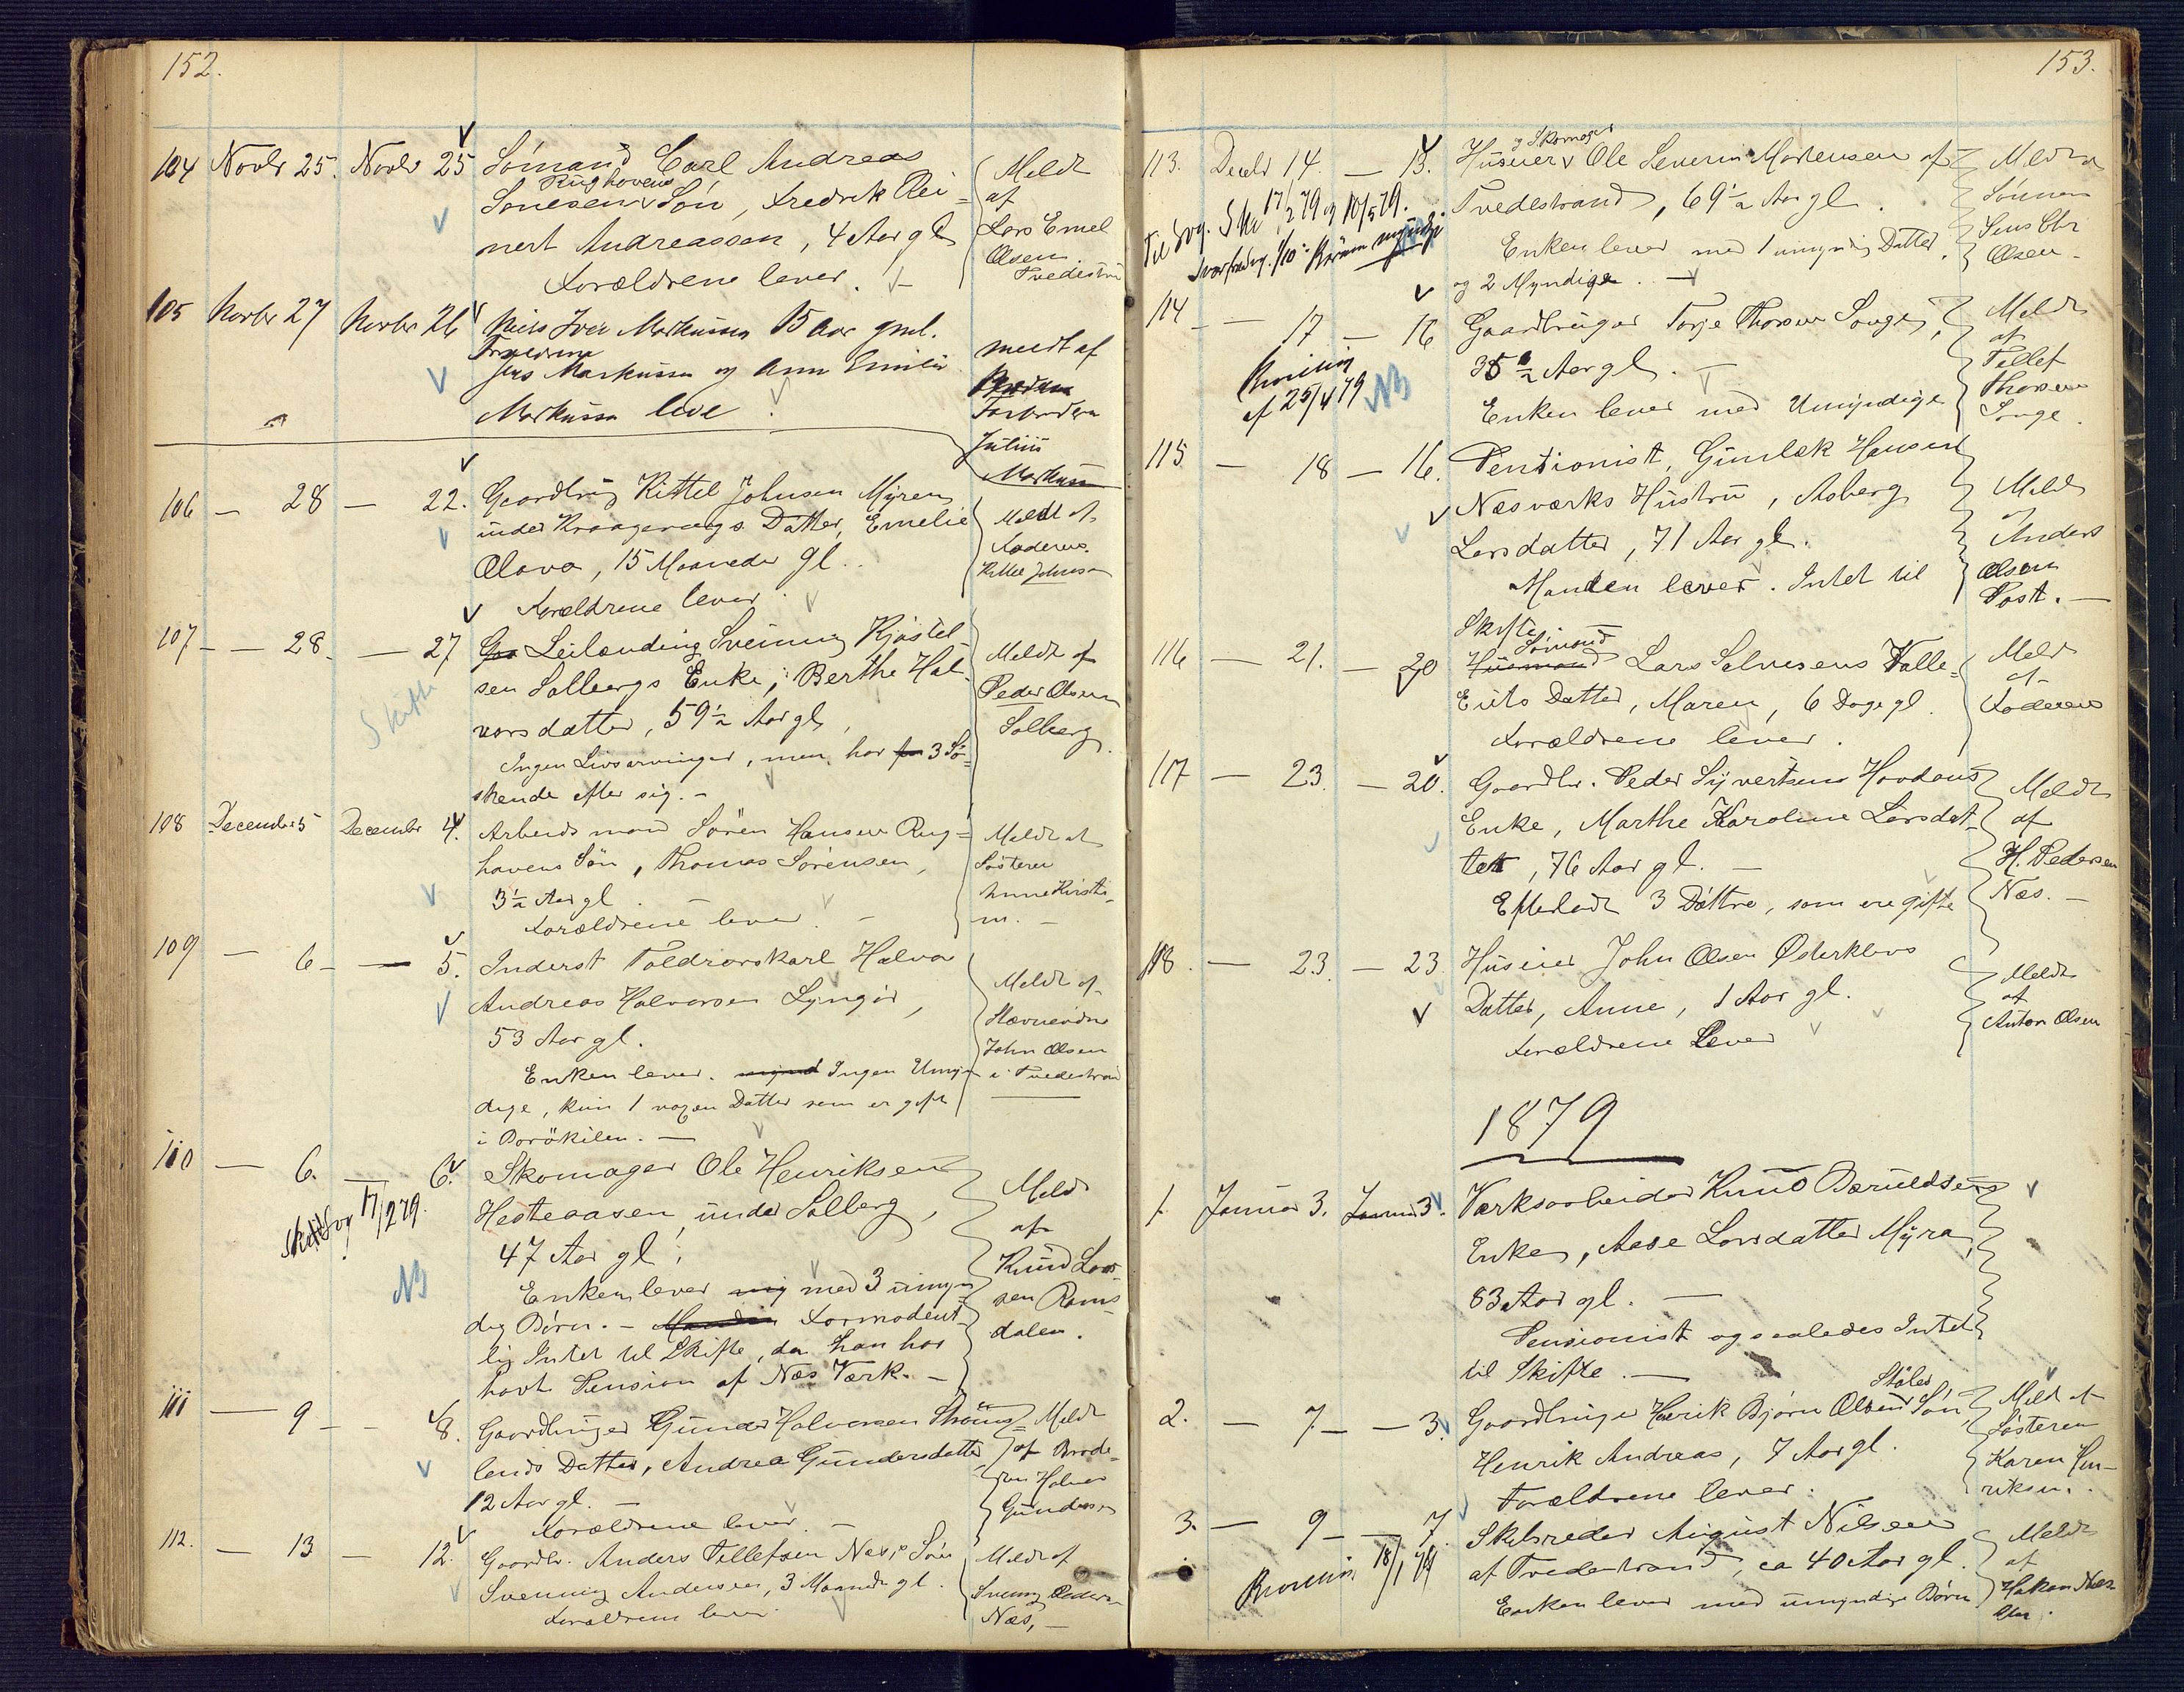 152.
104 Novbr 25. Novbr 25 Sömand Carl Andreas Meldt
Rughovens
Sön, Fredrik Rei= af
nert Andreassen, 4 Aar gl Lars Emel
Olsen
Forældrene lever. Tvedestrand
105 Novbr 27 Novbr 26 Niels Iver Markussen 15 Aar gml. meldt af
Jens Markussen og Ann Emilie
Markussen leve
Julius
Markussen
106 — 28 — 22. Gaardbrug Kittel Johnsen Myren
under Datter, Emelie Meldt af
Olava, 15 Maaneder gl. Faderen
Kittel Johnsen
Forældrene lever.
107 — 28. — 27 Leilænding Svenning Kjöstel= Meldt af
sen Solbergs Enke, Berthe Hal= Peder Olsen
vorsdatter, 59½ Aar gl, Solberg.
Skifte
Ingen Livsarvinger, men har 3 Sö=
skende efter sig. —
108 December 5 December 4. Arbeidsmand Sören Hansen Rug= Meldt af
havens Sön, Thomas Sörensen, Söstren
3½ Aar gl. Anne Kirsti=
Forældrene lever. — ne. —
109 — 6 — 5. Inderst Toldrorskarl Halvor
Andreas Halvorsen Lyngör, Meldt af
53 Aar gl. Stævnevidne
John Olsen
Enken lever. Ingen Umyn= i Tvedestrand
dige, kun 1 voxen Datter som er gift
i Borökilen. —
110 — 6. — 6. Skomager Ole Henriksen Meldt
Hesteaasen under Solberg, af
17/2 79.
47 Aar gl, Knud Lars=
NB
Enken lever med 3 umyn= sen Rams=
dig Börn. — Formodent= dalen.
lig Intet til Skifte, da han har
havt Pension af Næs Værk. —
111 — 9 — 8. Gaardbruger Gunder Halvorsen Meldt
lands Datter, Andrea Gundersdatter, af Brode=
12 Aar gl. — ren Halvor
Gundersen
Forældrene lever. —
112. — 13 — 12. Gaardbr. Anders Tellefsen Næs's Sön Meldt af
Svenning Andersen, 3 Maaneder gl. Svenning Peders=
Forældrene lever Næs, —
153.
og Skomager
113. Decbr 14. — 13. Huseier Ole Severin Mortensen af Meldt
Tvedestrand, 69½ Aar gl. Sönnen
17/2 79 og 10/5 79. Jens Chr
Enken lever med 1 umyndig Datter, Olsen.
og 2 Myndige. —
114 — 17 — 16 Gaardbruger Torje Thorsen Songe, Meldt
af
35½ Aar gl. — Tellef
af 25/4 79 NB Thorsen
Enken lever med Umyndige Songe.
115 — 18 — 16. Pensionist, Gunlek Hansen
Næsværks Hustru, Asberg Meldt
af
Larsdatter, 71 Aar gl. Anders
Olsen
Manden lever. Intet til Post. —
Skifte. Sömand
116 — 21. — 20 Husmand Lars Salvesens Valle= Meldt
af
Eiets Datter, Maren, 6 Dage gl. Faderen
Forældrene lever.
117 — 23. — 20. Gaardbr. Peder Syvertsens Hovdans Meldt
Enke, Marthe Karoline Larsdat= af
ter, 76 Aar gl. — H. Pedersen
Efterladt 3 Döttre, som ere gifte Næs. —
118. — 23 — 23. Huseier John Olsen Österklevs Meldt
af
Datter, Anne, 1 Aar gl. Anton Olsen
Forældrene Lever
1879
1. Januar 3. Januar 3. Værksarbeider Knud
Enke, Aase Larsdatter Myra,
83 Aar gl. —
Pensionist og saaledes Intet
til Skifte. —
2. — 7 — 3. Gaardbruger Henrik Björn Olsen Ståles Sön, Meldt af
Söstren
Henrik Andreas, 7 Aar gl. Karen Hen=
Forældrene lever. riksen.
3. — 9 — 7. Skibsreder August Nilsen Meldt
18/1 79
af Tvedestrand, ca 40 Aar gl. af
Enken lever med umyndige Börn Hakon